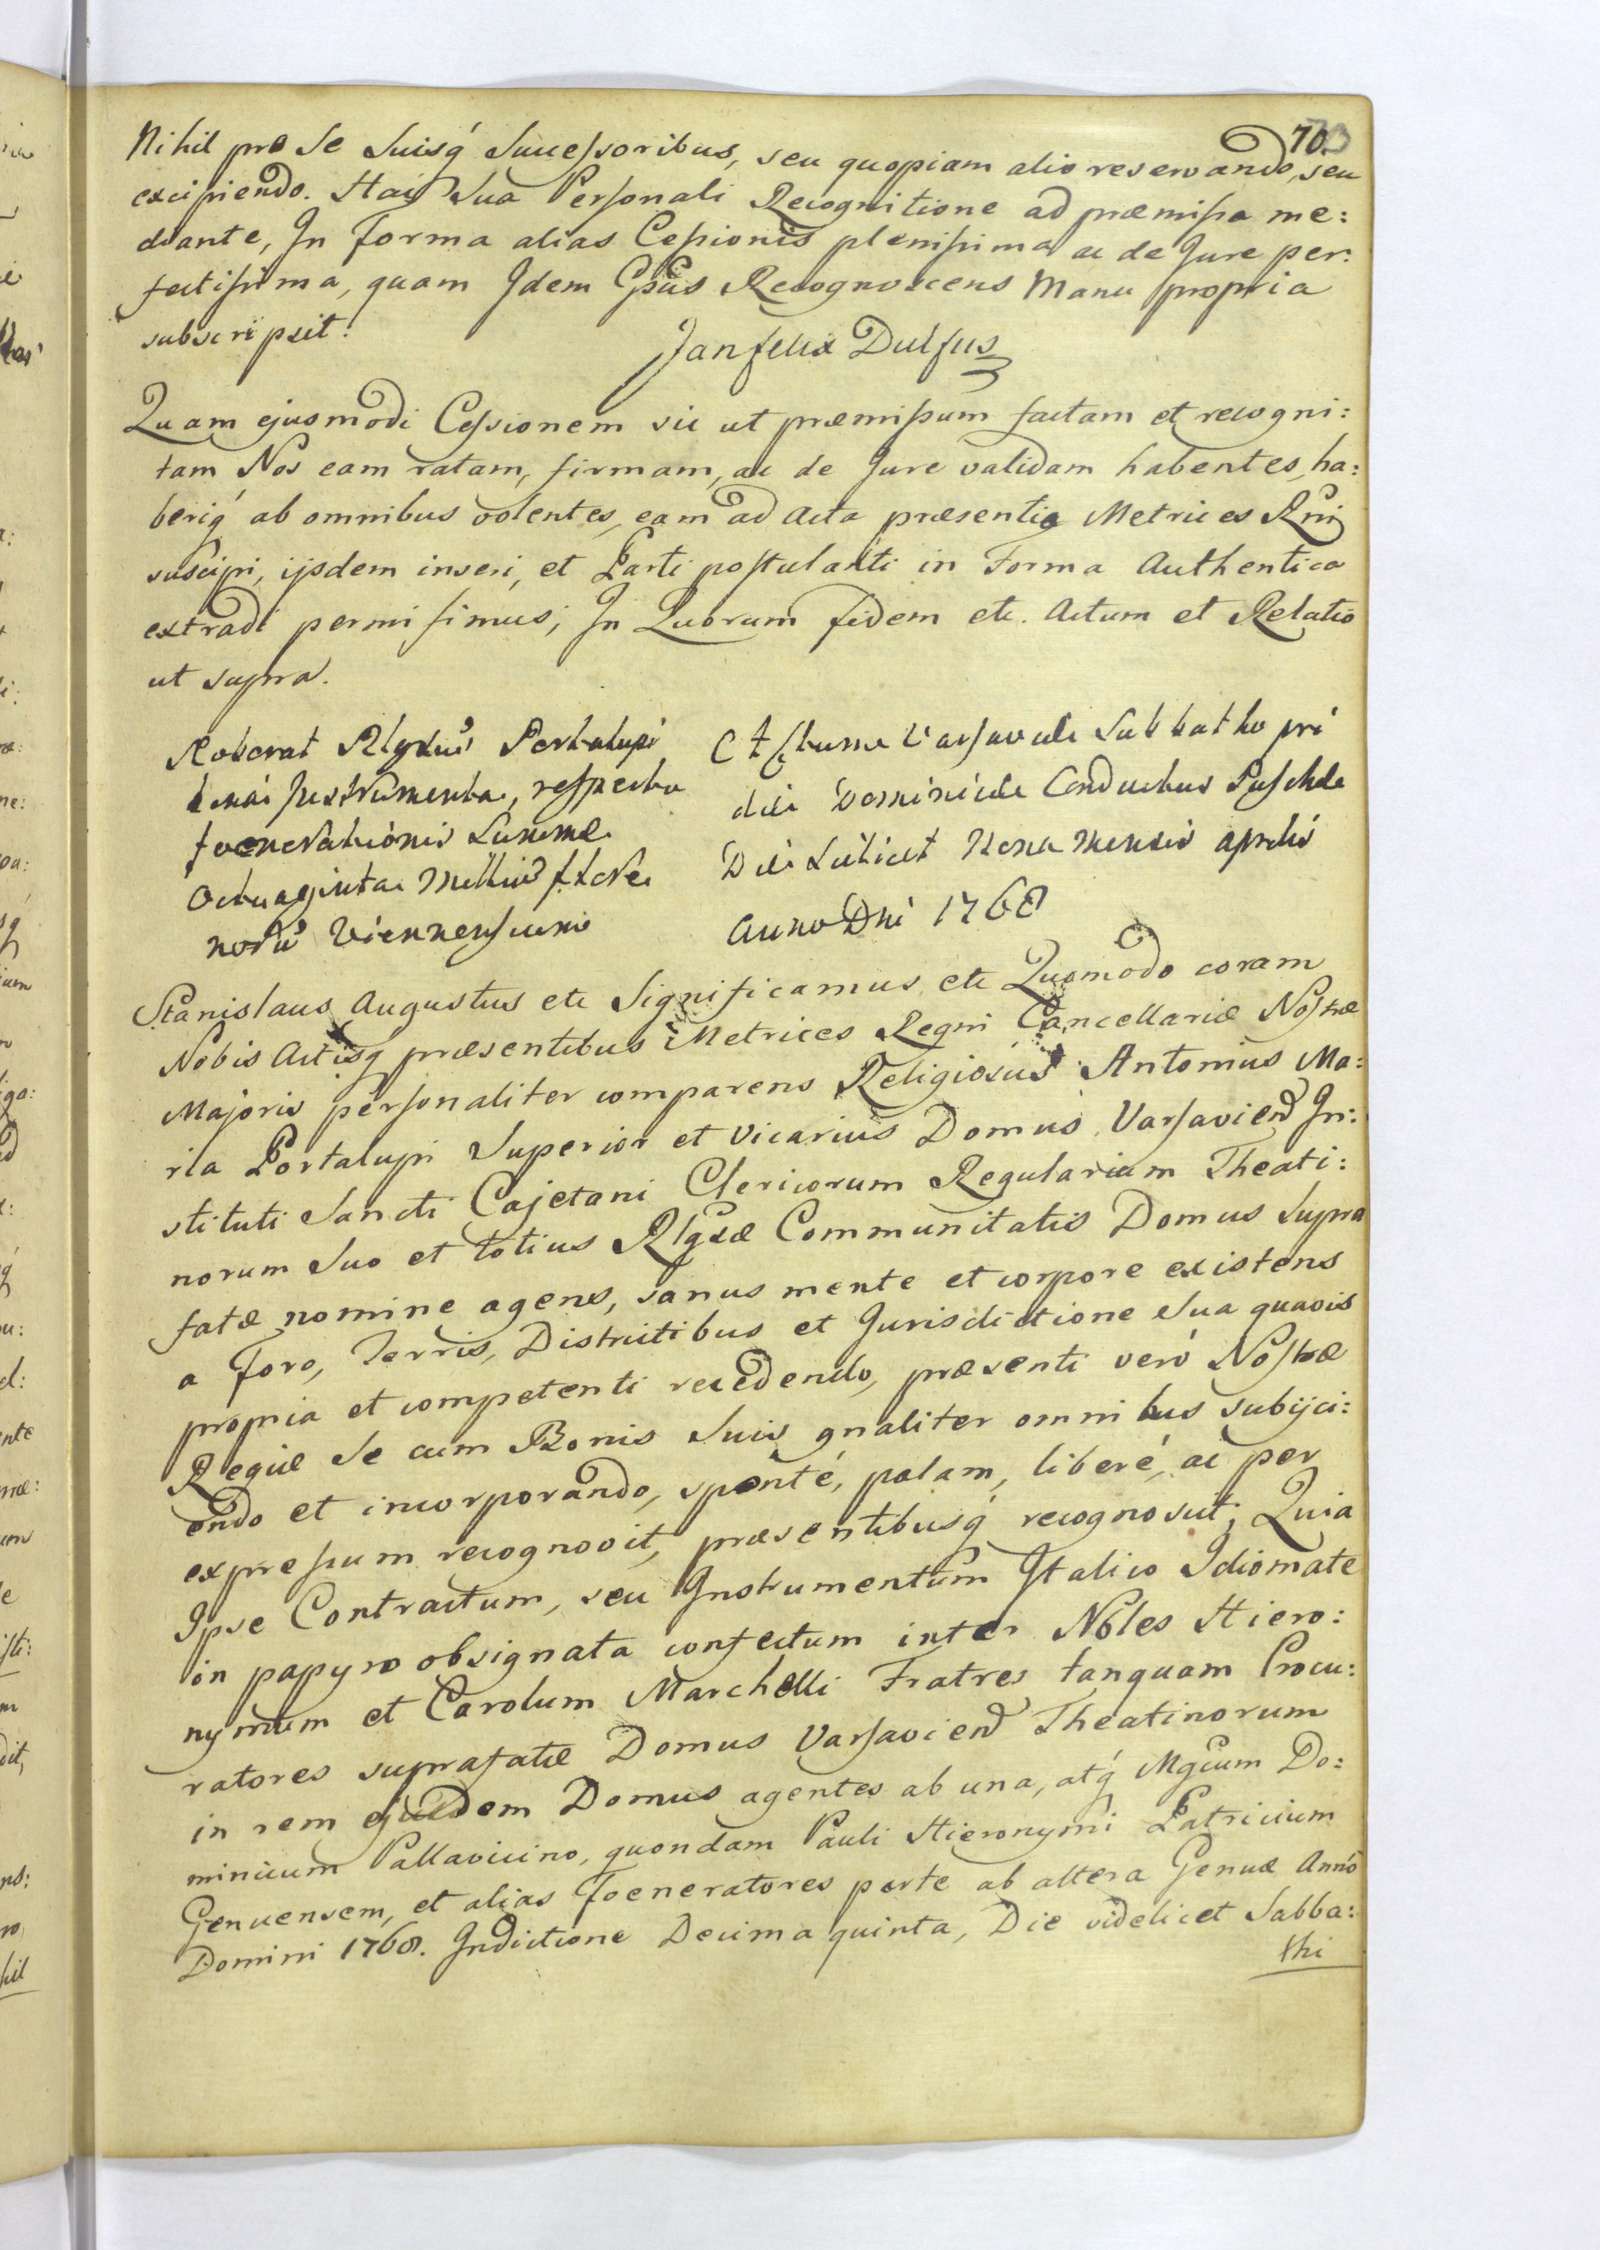 70
Nihil pro Se Suisq́ Successoribus, seu quopiam alio reservando, seu
excipiendo. Hac Sua Personali Recognitione ad præmissa me:
diante, In Forma alias Cessionis plenissima ac de Jure per:
fectissima, quam Idem Gsus Recognoscens Manu propria
subscripsit.
Jan felix Dulfus
Quam ejusmodi Cessionem sic ut præmissum factam et recogni:
tam Nos eam ratam, firmam, ac de Jure validam habentes, ha:
beriq́ ab omnibus volentes, eam ad Acta præsentia Metrices Rni
suscipi, ijsdem inseri, et Parti postulanti in Forma Authentica
extradi permisimus; In Quorum fidem etc. Actum et Relatio
ut supra.
Roborat Rlgsus Portalupi
Instrumenta, respectu
foenerationis Summæ
Octuaginta Millium flore
norū Viennensium
Actum Varsaviæ Sabbatho pri
die Dominicæ Conductus Paschæ
Die Scilicet Nona Mensis aprilis
Anno Dni 1768
Stanislaus Augustus etc Significamus etc Quomodo coram
Nobis Actisq́ præsentibus Metrices Regni Cancellariæ Nostræ
Majoris personaliter comparens Religiosus Antonius Ma:
ria Portalupi Superior et Vicarius Domus Varsavien In:
stituti Sancti Cajetani Clericorum Regularium Theati:
norum Suo et totius Rlgsæ Communitatis Domus Supra
fatæ nomine agens, sanus mente et corpore existens
a Foro, Terris, Districtibus et Jurisdictione Sua quavis
propria et competenti recedendo, præsenti verò Nostræ
Regiæ Se cum Bonis Suis gnaliter omnibus subijci:
endo et incorporando, sponté, palam, liberé, ac per
expressum recognovit, præsentibusq́ recognoscit; Quia
Ipse Contractum, seu Instrumentum Italico Idiomate
in papyro obsignata confectum inter Nobles Hiero:
nymum et Carolum Marchelli Fratres tanquam Procu:
ratores suprafatæ Domus Varsavien Theatinorum
in rem ejusdem Domus agentes ab una, atq́ Mgcum Do:
minicum Pallavicino, quondam Pauli Hieronymi Patricium
Genuensem, et alias Foeneratores parte ab altera Genuæ Anno
Domini 1768. Indictione Decima quinta, Die videlicet Sabba:
thi